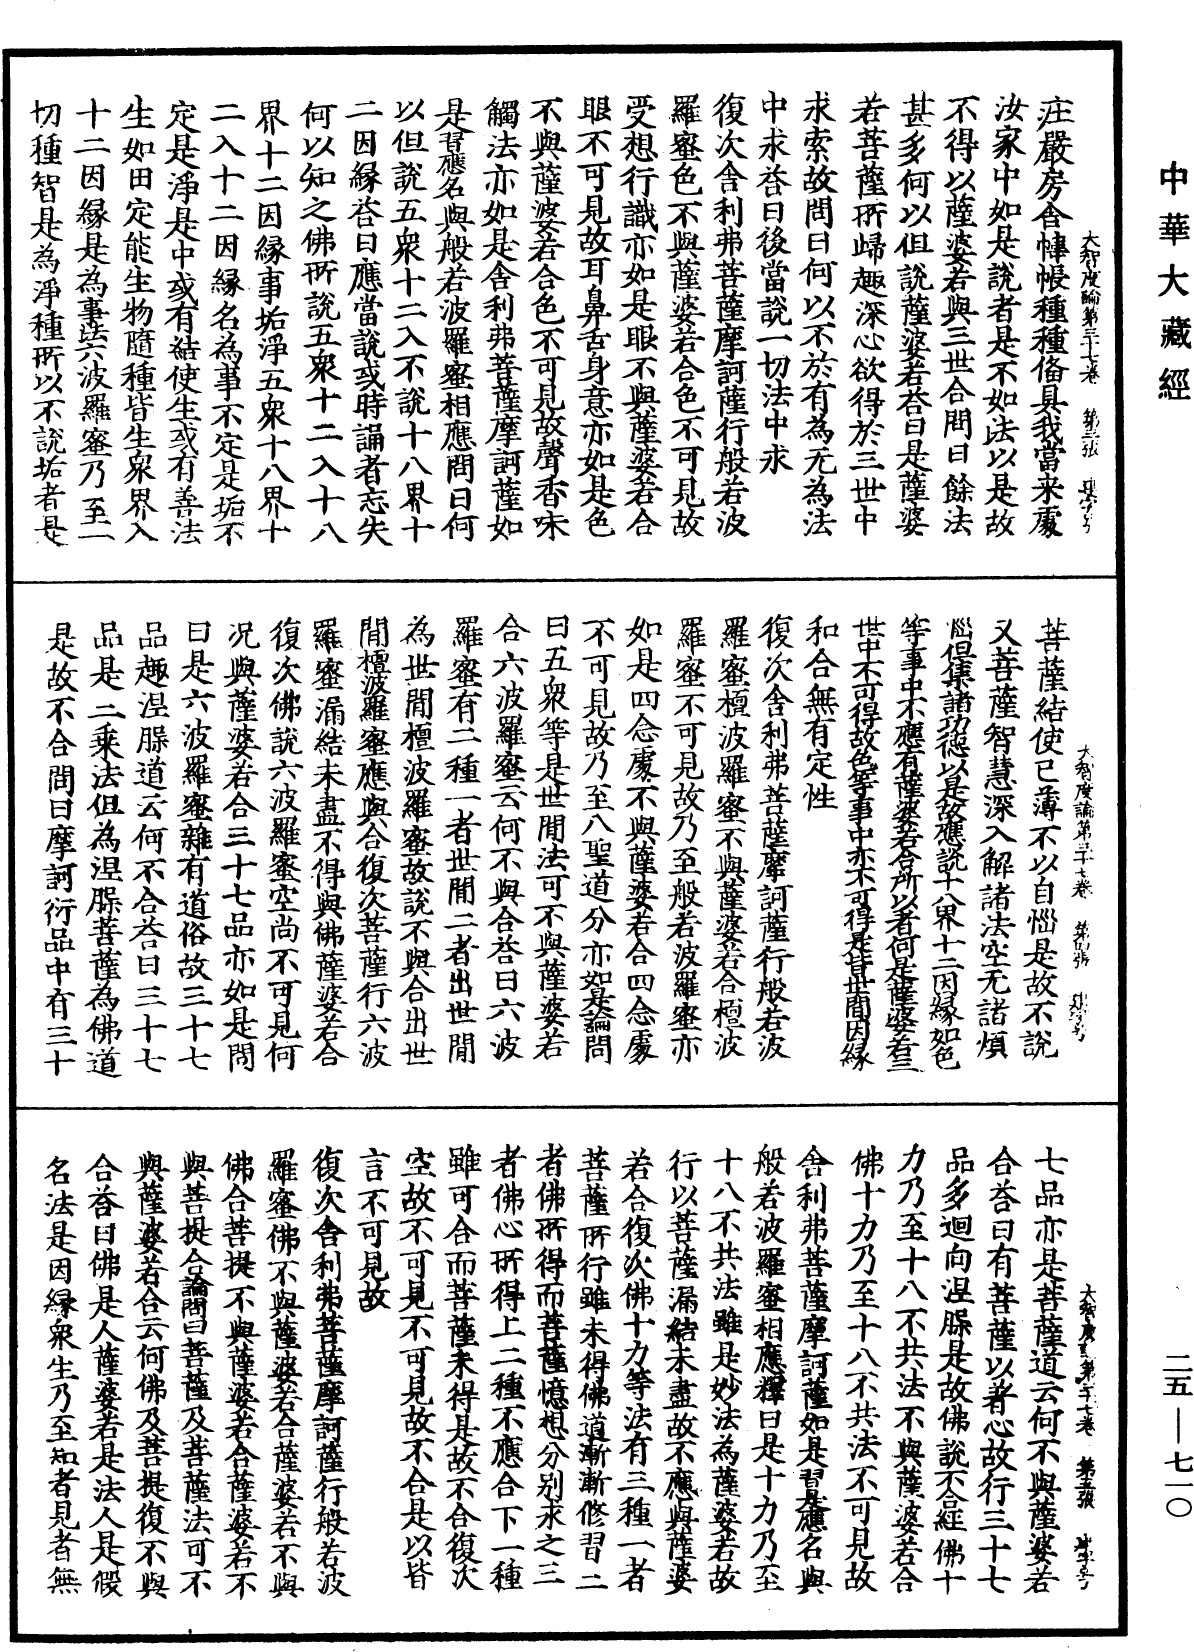 中華大藏經
二五—七一〇
大智度論第三十七卷　第三張
莊嚴房舍幃帳種種俻具我當来處
汝家中如是說者是不如法以是故
不得以薩婆若與三世合問曰餘法
甚多何以但說薩婆若荅曰是薩婆
若菩薩所歸趣深心欲得於三世中
求索故問曰何以不於有為无為法
中求荅曰後當說一切法中求
復次舍利弗菩薩摩訶薩行般若波
羅蜜色不與薩婆若合色不可見故
受想行識亦如是眼不與薩婆若合
眼不可見故耳鼻舌身意亦如是色
不與薩婆若合色不可見故聲香味
觸法亦如是舍利弗菩薩摩訶薩如
是習應名與般若波羅蜜相應問曰何
以但說五衆十二入不說十八界十
二因緣荅曰應當說或時誦者忘失
何以知之佛所說五衆十二入十八
界十二因緣事垢淨五衆十八界十
二入十二因緣名為事不定是垢不
定是淨是中或有結使生或有善法
生如田定能生物隨種皆生衆界入
十二因緣是為事法六波羅蜜乃至一
切種智是為淨種所以不說垢者是
大智度論第三十七卷　第四張
菩薩結使已薄不以自惱是故不說
又菩薩智慧深入解諸法空无諸煩
惱但集諸功德以是故應說十八界十二因緣如色
等事中不應有薩婆若合所以者何是薩婆若三
世中不可得故色等事中亦不可得是皆世間因緣
和合無有定性
復次舍利弗菩薩摩訶薩行般若波
羅蜜檀波羅蜜不與薩婆若合檀波
羅蜜不可見故乃至般若波羅蜜亦
如是四念處不與薩婆若合四念處
不可見故乃至八聖道分亦如是論問
曰五衆等是世間法可不與薩婆若
合六波羅蜜云何不與合荅曰六波
羅蜜有二種一者世間二者出世間
為世間檀波羅蜜故說不與合出世
間檀波羅蜜應與合復次菩薩行六波
羅蜜漏結未盡不得與佛薩婆若合
復次佛說六波羅蜜空尚不可見何
况與薩婆若合三十七品亦如是問
曰是六波羅蜜雜有道俗故三十七
品趣涅槃道云何不合荅曰三十七
品是二乘法但為涅槃菩薩為佛道
是故不合問曰摩訶衍品中有三十
大智度論第三十七卷　第五張
七品亦是菩薩道云何不與薩婆若
合荅曰有菩薩以著心故行三十七
品多迴向涅槃是故佛說不合經佛十
力乃至十八不共法不與薩婆若合
佛十力乃至十八不共法不可見故
舍利弗菩薩摩訶薩如是習應名與
般若波羅蜜相應釋曰是十力乃至
十八不共法雖是妙法為薩婆若故
行以菩薩漏結未盡故不應與薩婆
若合復次佛十力等法有三種一者
菩薩所行雖未得佛道漸漸修習二
者佛所得而菩薩憶想分别求之三
者佛心所得上二種不應合下一種
雖可合而菩薩未得是故不合復次
空故不可見不可見故不合是以皆
言不可見故
復次舍利弗菩薩摩訶薩行般若波
羅蜜佛不與薩婆若合薩婆若不與
佛合菩提不與薩婆若合薩婆若不
與菩提合論問曰菩薩及菩薩法可不
與薩婆若合云何佛及菩提復不與
合荅曰佛是人薩婆若是法人是假
名法是因緣衆生乃至知者見者無